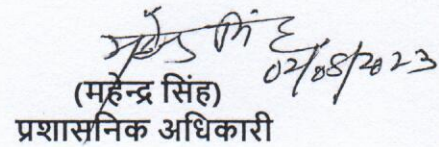 महेन्द्र सिंह
02/08/2023
(महेन्द्र सिंह)
प्रशासनिक अधिकारी